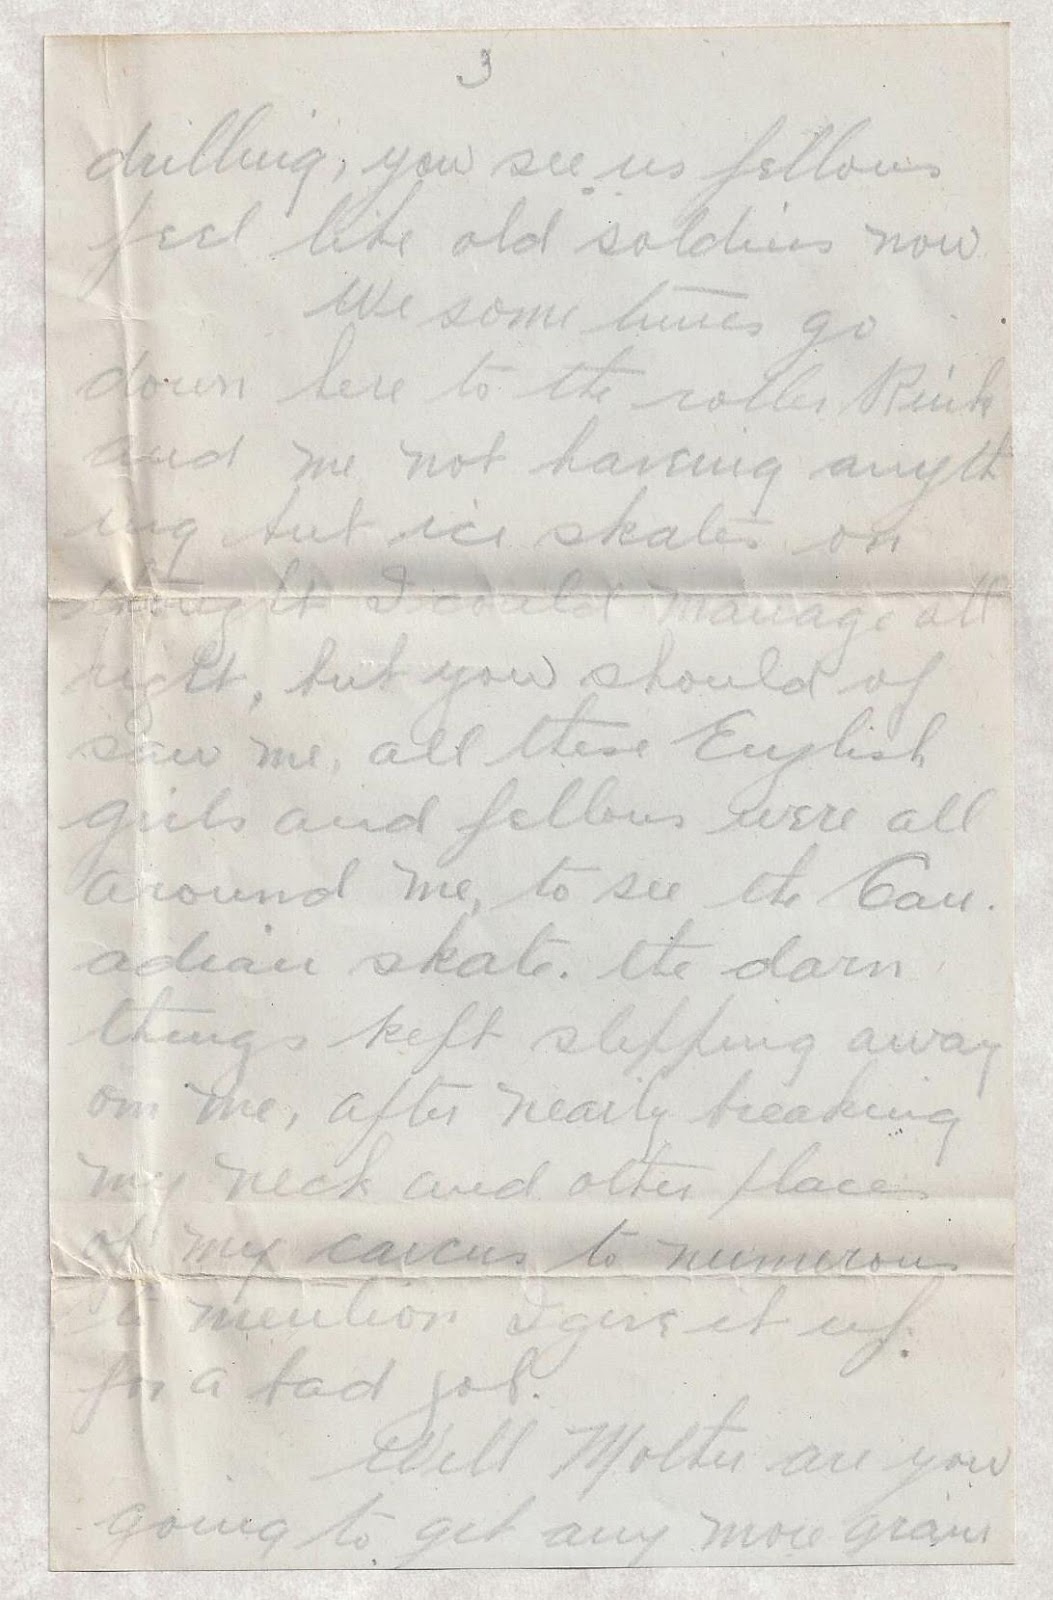 3
drilling, you see us fellows
feel like old soldiers now
We some times go
down here to the roller Rink
and me not having anyth
ing but ice skates on
thought I could manage all
right, but you should of
saw me, all these English
girls and fellows were all
around me, to see the Can.
adian skate. the darn
things kept slipping away
om me, after nearly breaking
my neck and other places
of my carcus to numerous
to mention I give it up.
for a bad job.
Well Mother are you
going to get any more grain